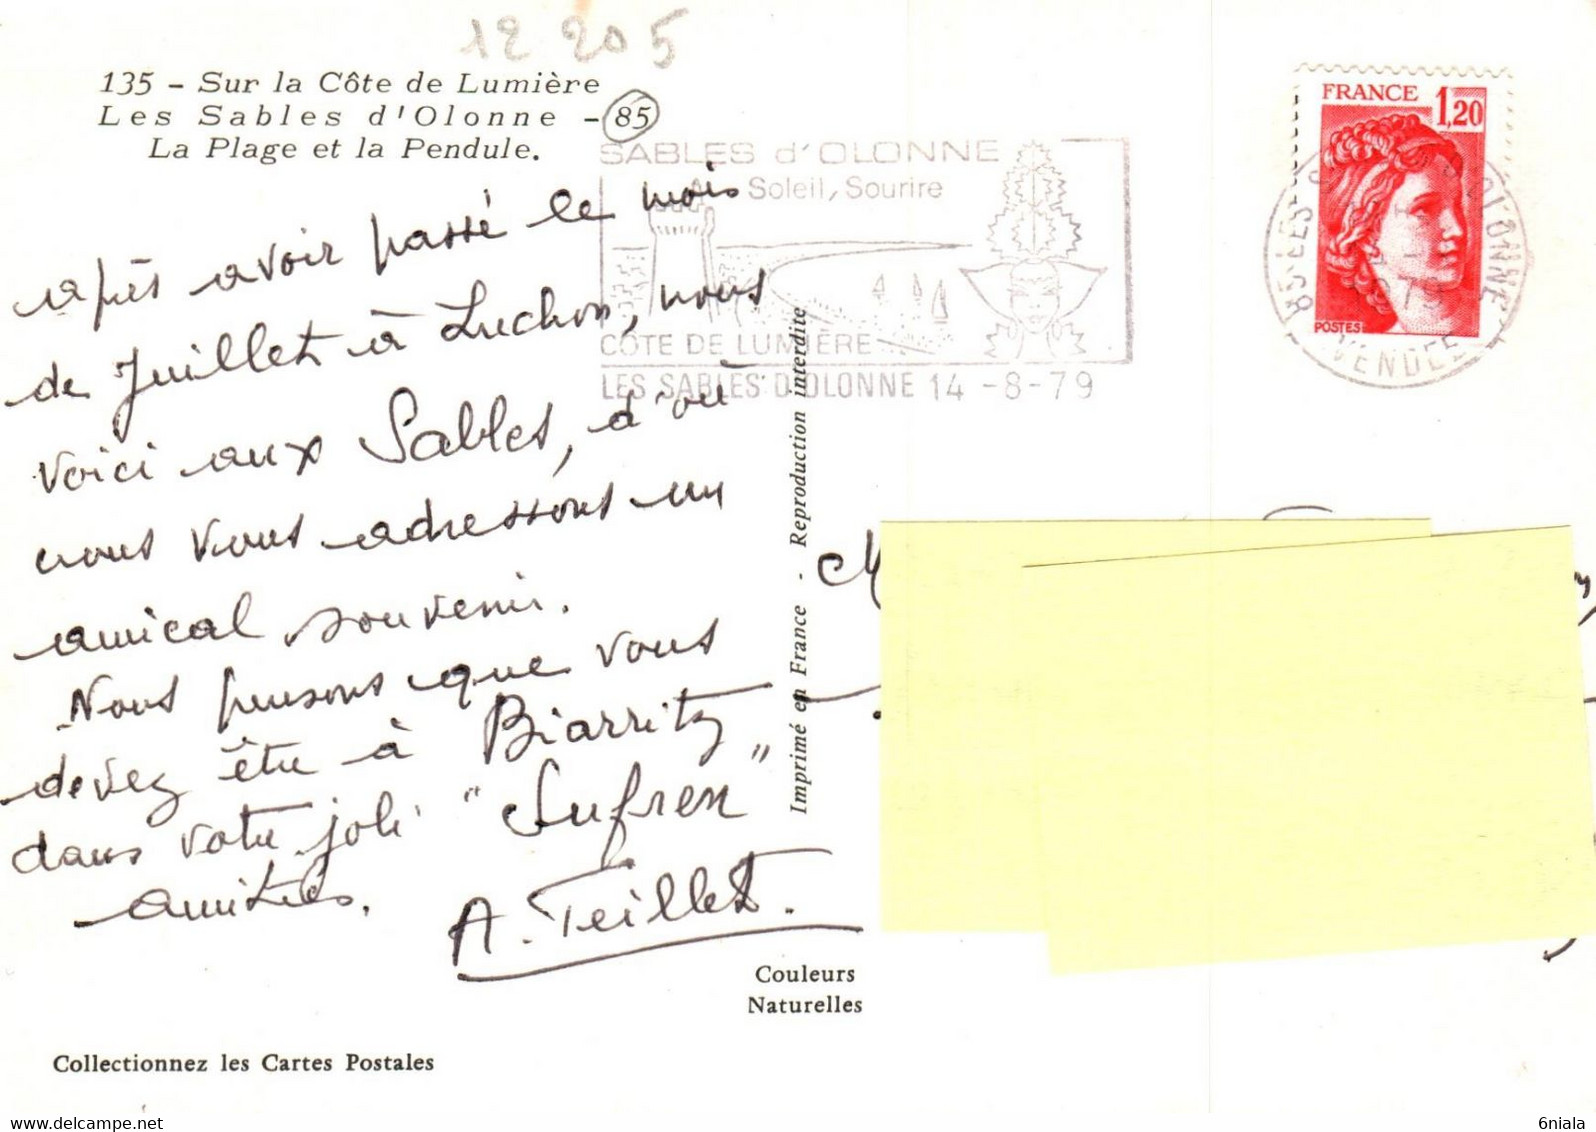 12 205
135 - Sur la Côte de Lumière
Les Sables d'Olonne - 85
La Plage et la Pendule.
après avoir passé le mois
de Juillet à Luchon, nous
voici aux Sables, d'où
nous vous adressons un
amical souvenir.
Nous pensons que vous
devez être à Biarritz
dans votre joli "Sufren"
amitiés.
A. Teillet.
SABLES d'OLONNE
Soleil, Sourire
CÔTE DE LUMIÈRE
LES SABLES D'OLONNE 14 -8-79
FRANCE 1,20
POSTES
85 LES S D'OLONNE
VENDEE
Imprimé en France - Reproduction interdite
M
Couleurs
Naturelles
Collectionnez les Cartes Postales
6niala